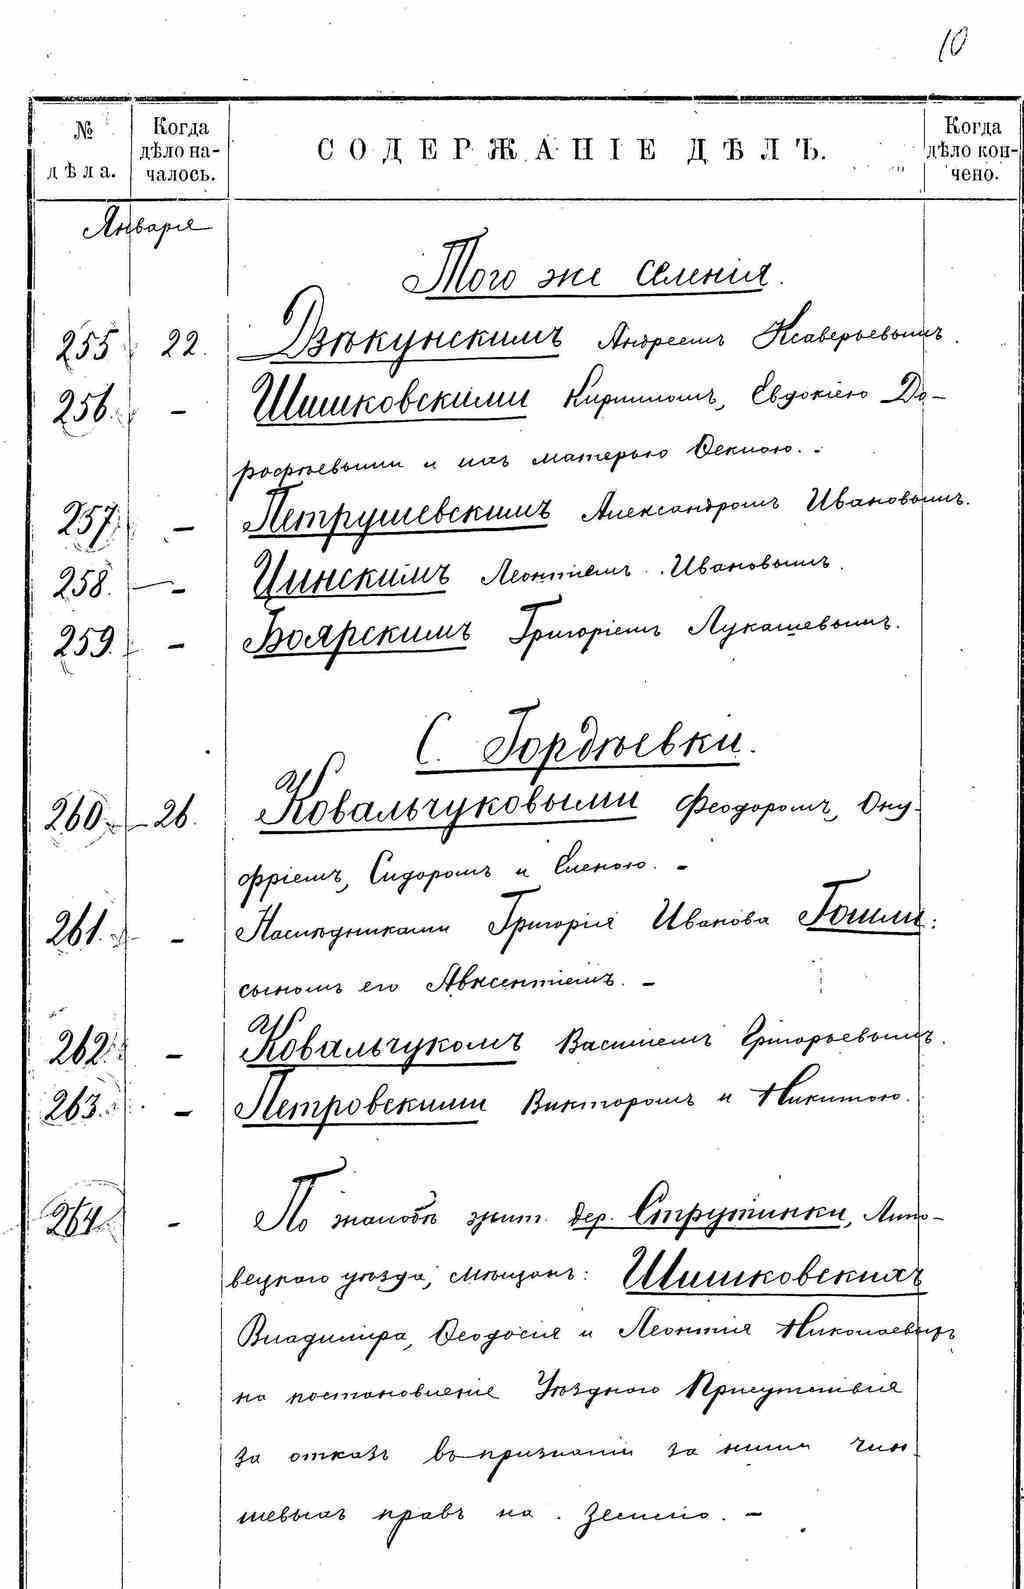 10
№ дѣла. Когда дѣло началось. СОДЕРЖАНІЕ ДѢЛЪ. Когда дѣло кончено.
Января
Того же селенія.
255 22. Дзѣкунскимъ Андреемъ Ксаверьевымъ.
256. - Шишковскими Кириломъ, Евдокіею До-
рофѣевыми и ихъ матерью Феклою.
257. - Петрушевскимъ Александромъ Ивановымъ.
258. - Цинскимъ Леонтіемъ Ивановымъ.
259. - Боярскимъ Григоріемъ Лукашевымъ.
С. Гордѣевки.
260 - 26. Ковальчуковыми Феодоромъ, Ону-
фріемъ, Сидоромъ и Еленою. -
261. - Наслѣдниками Григорія Иванова Гошли:
сыномъ его Авксентіемъ. -
262. - Ковальчукомъ Василіемъ Григорьевымъ.
263. - Петровскими Викторомъ и Никитою.
264 - По жалобѣ жит. дер. Струтинки, Липо-
вецкаго уѣзда, мѣщанъ: Шишковскихъ
Владиміра, Феодосія и Леонтія Николаевыхъ
на постановленіе Уѣзднаго Присутствія
за отказъ въ признаніи за ними чин-
шевыхъ правъ на землю. -